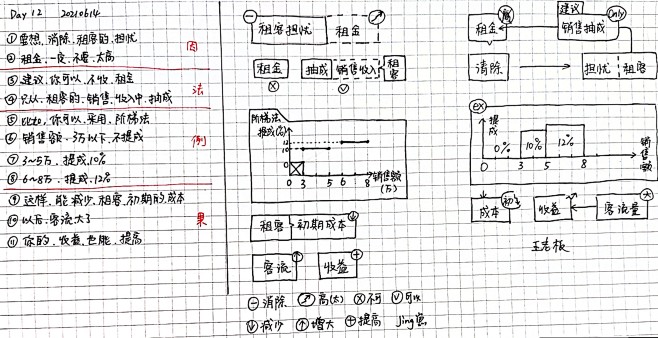 Day 12 20210614
①要想、消除、租客的、担忧
②租金、一定、不要、太高
因
③建议、你可以、不收、租金
④只从、租客的、销售、收入中、抽成
法
⑤比如、你可以、采用、阶梯法
⑥销售额、3万以下、不提成
⑦3~5万、提成、10%
⑧6~8万、提成、12%
例
⑨这样、能、减少、租客、初期的、成本
⑩以后、客流大了
⑪你的、收益、也能、提高
果
租客担忧 租金
租金 抽成 销售收入 租客
阶梯法
提成(%)
12
10
0
0 3 5 6 8 销售额
(万)
租客 初期成本
客流 收益
消除 高(太) 不可 可以
减少 增大 提高 Jing昱
租金 高 建议 销售抽成 Only
清除 担忧 租客
ex
提成
0% 10% 12%
3 5 8 销售额
成本 初 收益 客流量 大
王老板